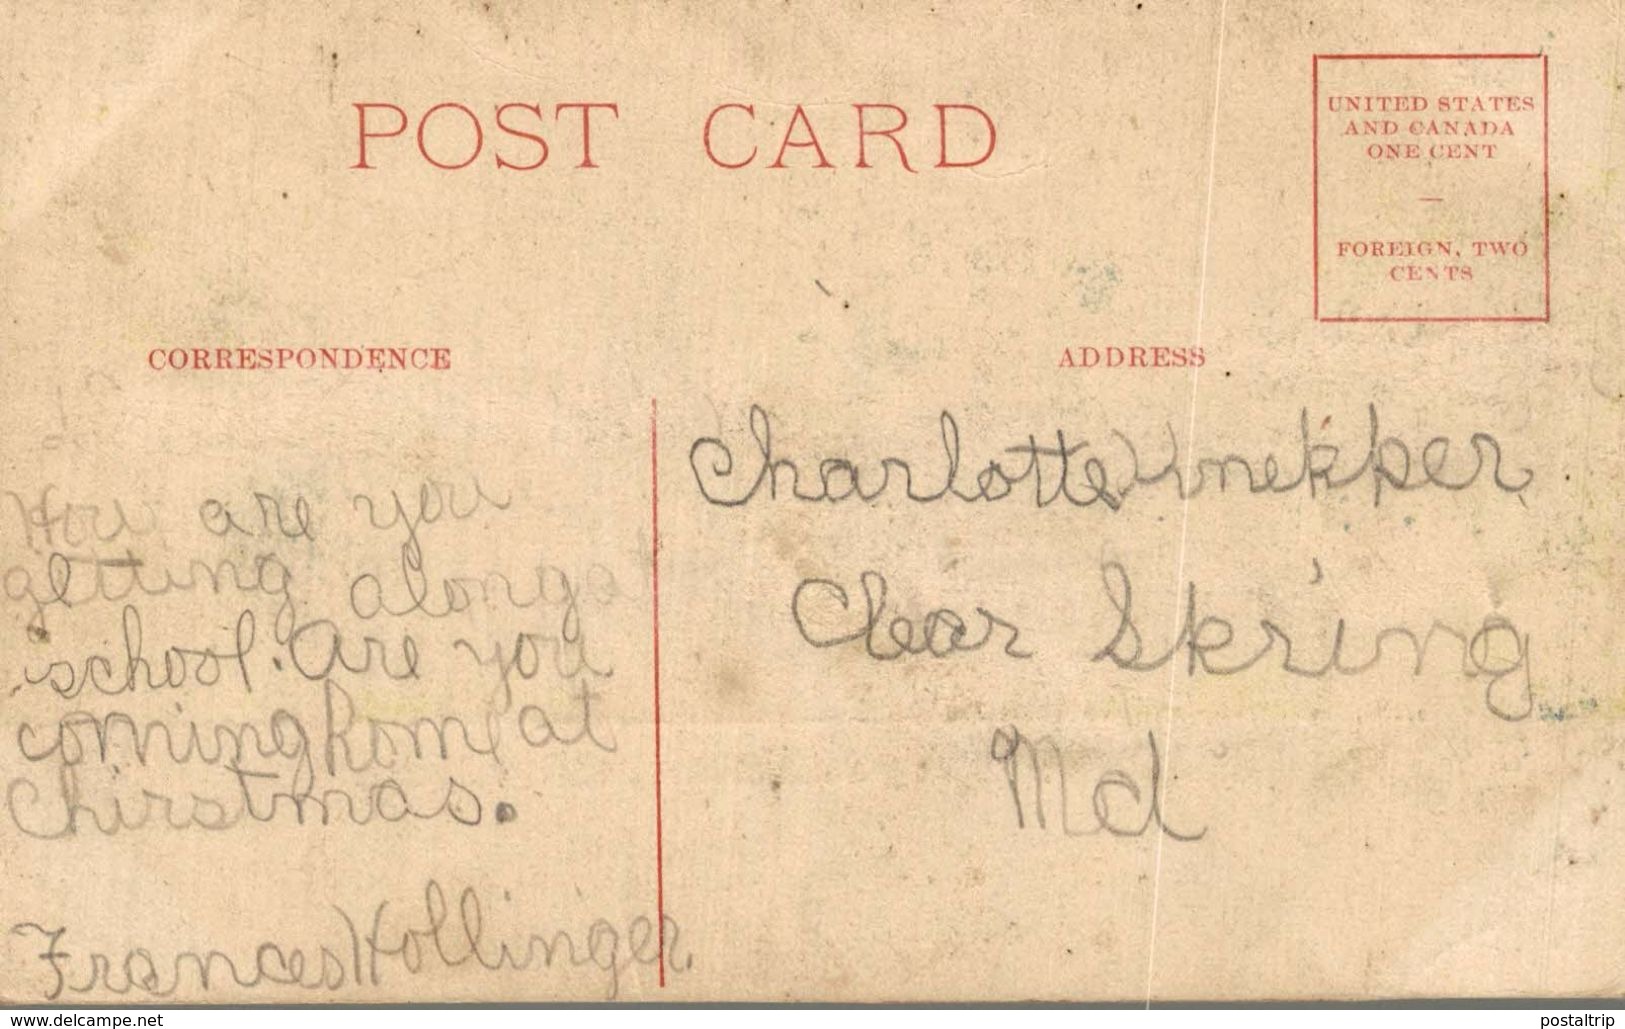 POST CARD
UNITED STATES
AND CANADA
ONE CENT
—
FOREIGN, TWO
CENTS
CORRESPONDENCE
ADDRESS
How are you
getting along at
school. Are you
coming home at
Chirstmas.
Frances Hollinger.
Charlotte Knekper
Clear Skring
Md
www.delcampe.net
postaltrip